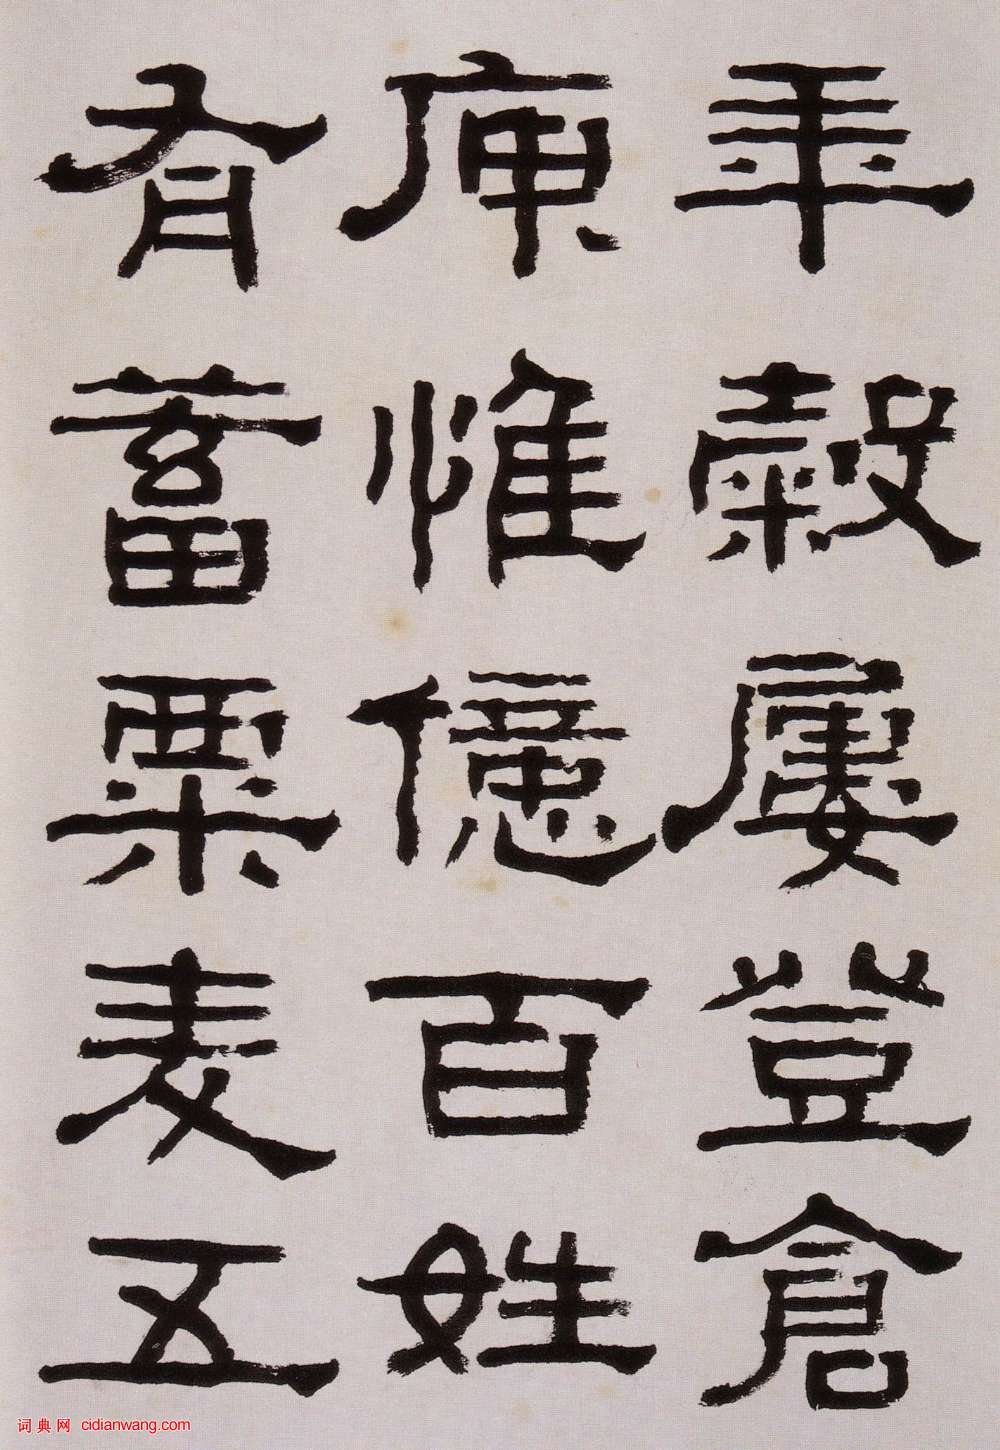 年穀屢登倉
庾惟億百姓
有蓄粟麦五
词典网 cidianwang.com